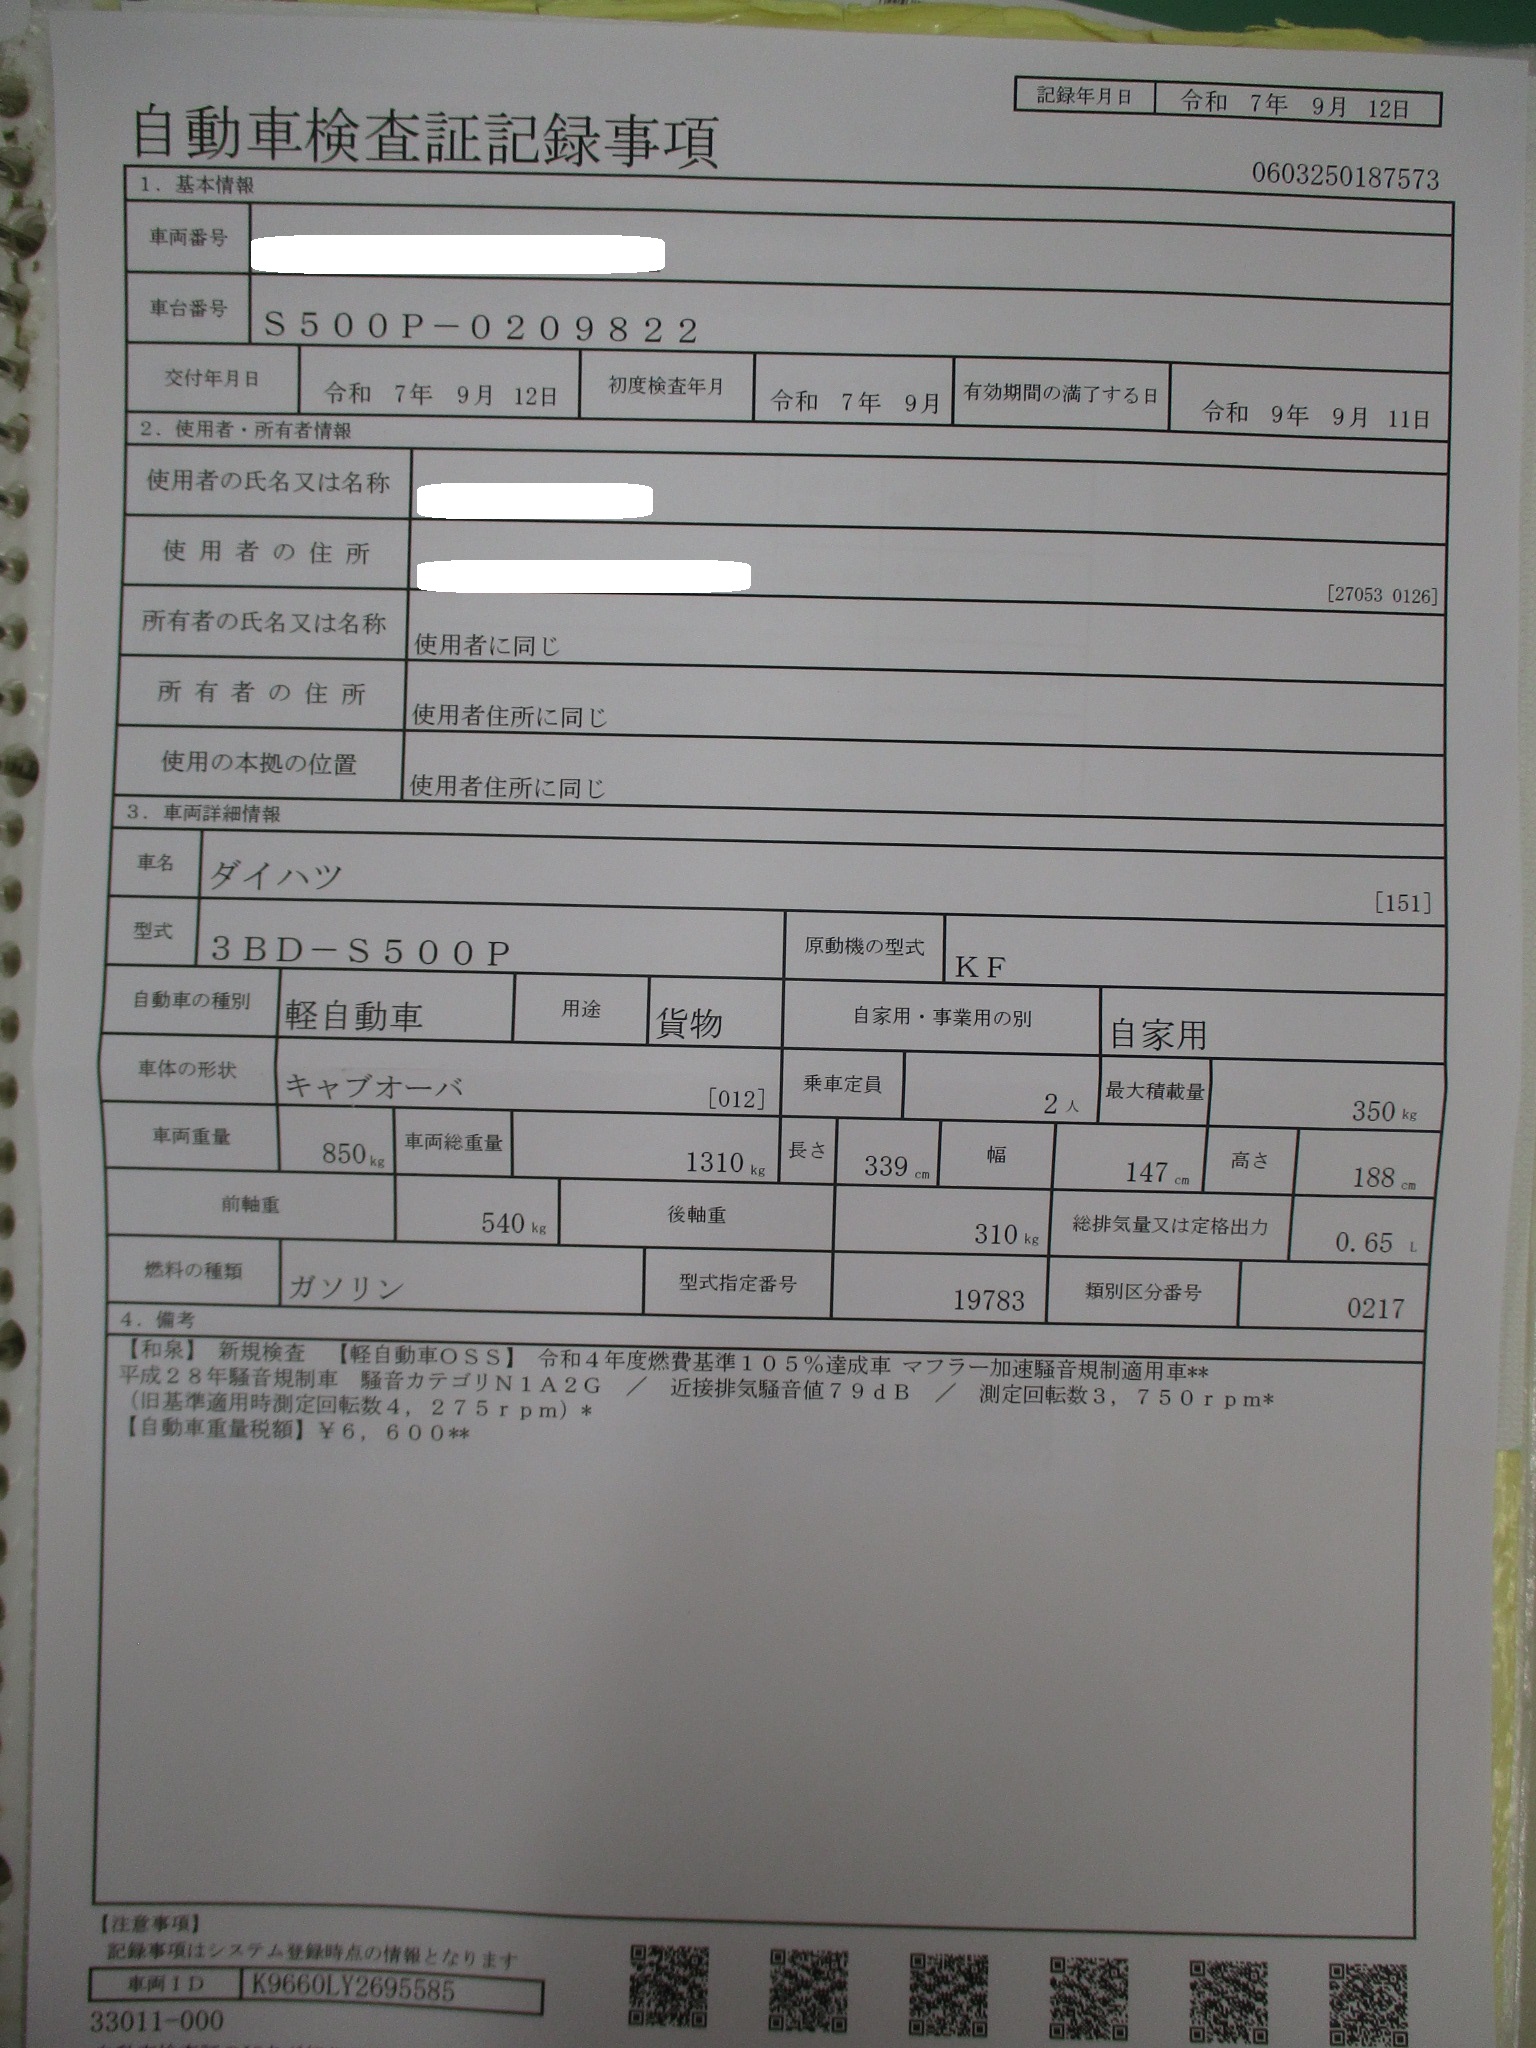 記録年月日 令和 7年 9月 12日
自動車検査証記録事項
0603250187573
1. 基本情報
車両番号
車台番号 S500P-0209822
交付年月日 令和 7年 9月 12日 初度検査年月 令和 7年 9月 有効期間の満了する日 令和 9年 9月 11日
2. 使用者・所有者情報
使用者の氏名又は名称
使用者の住所 [27053 0126]
所有者の氏名又は名称 使用者に同じ
所有者の住所 使用者住所に同じ
使用の本拠の位置 使用者住所に同じ
3. 車両詳細情報
車名 ダイハツ [151]
型式 3BD-S500P 原動機の型式 KF
自動車の種別 軽自動車 用途 貨物 自家用・事業用の別 自家用
車体の形状 キャブオーバ [012] 乗車定員 2人 最大積載量 350kg
車両重量 850kg 車両総重量 1310kg 長さ 339cm 幅 147cm 高さ 188cm
前軸重 540kg 後軸重 310kg 総排気量又は定格出力 0.65 L
燃料の種類 ガソリン 型式指定番号 19783 類別区分番号 0217
4. 備考
【和泉】 新規検査 【軽自動車OSS】 令和4年度燃費基準105%達成車 マフラー加速騒音規制適用車**
平成28年騒音規制車 騒音カテゴリN1A2G / 近接排気騒音値79dB / 測定回転数3,750rpm*
(旧基準適用時測定回転数4,275rpm)*
【自動車重量税額】¥6,600**
【注意事項】
記録事項はシステム登録時点の情報となります
車両ID K9660LY2695585
33011-000